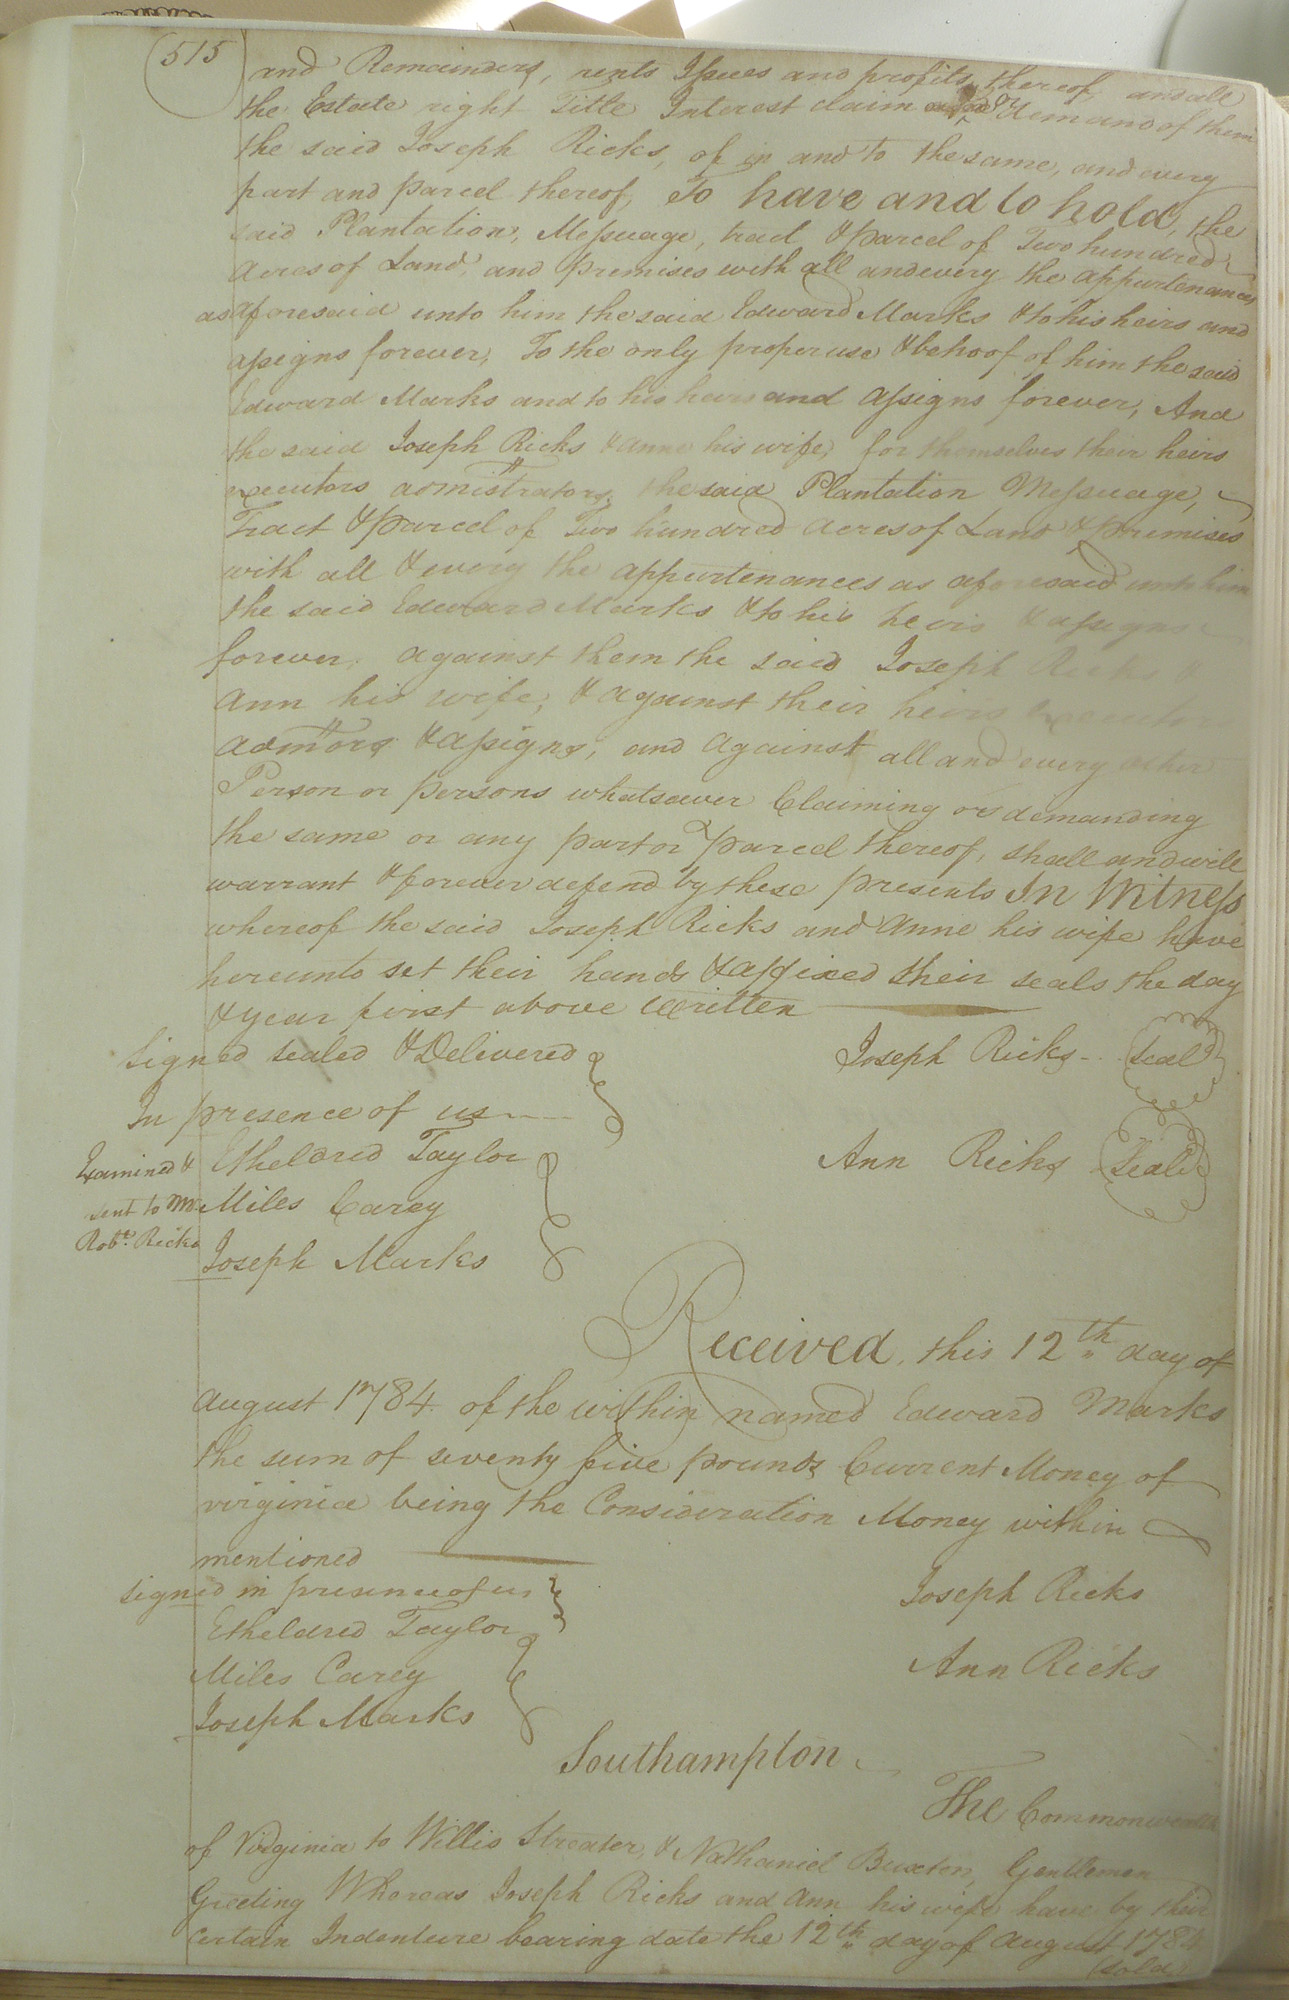 515
and Remainders, rents Issues and profits thereof, and all
the Estate right Title Interest claim and demand of them
the said Joseph Ricks, of in and to the same, and every
part and parcel thereof, To have and to hold, the
said Plantation, Messuage, tract & parcel of Two hundred
acres of Land, and premises with all and every the appurtenances
as aforesaid unto him the said Edward Marks & to his heirs and
assigns forever, To the only proper use & behoof of him the said
Edward Marks and to his heirs and assigns forever, And
the said Joseph Ricks & Anne his wife, for themselves their heirs
executors admistrators, the said Plantation Messuage,
Tract & parcel of Two hundred acres of Land & premises
with all & every the appurtenances as aforesaid unto him
the said Edward Marks & to his heirs & assigns
forever, against them the said Joseph Ricks &
Ann his wife, & against their heirs executors
admttors & assigns, and against all and every other
Person or persons whatsoever Claiming or demanding
the same or any part or parcel thereof, shall and will
warrant & forever defend by these presents In Witness
whereof the said Joseph Ricks and Anne his wife have
hereunto set their hands & affixed their seals the day
& year first above written
Signed sealed & Delivered
Joseph Ricks Seal
In presence of us
Etheldred Taylor
Ann Ricks Seal
Examined &
sent to Mr.
Robt. Ricks
Miles Carey
Joseph Marks
Received, this 12th day of
August 1784. of the within named Edward Marks
the sum of seventy five pounds Current Money of
virginia being the Consideration Money within
mentioned
signed in presence of us
Joseph Ricks
Etheldred Taylor
Miles Carey
Ann Ricks
Joseph Marks
Southampton
The Commonwealth
of Virginia to Willis Streater, & Nathaniel Buxton, Gentlemen
Greeting Whereas Joseph Ricks and Ann his wife have by their
certain Indenture bearing date the 12th day of August 1784
(sold